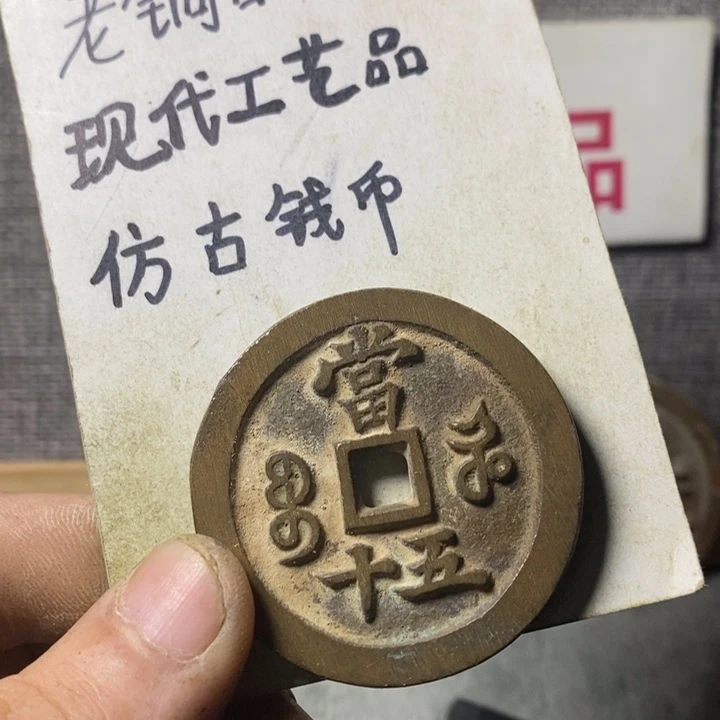 老铜
现代工艺品
仿古钱币
品
當
五十